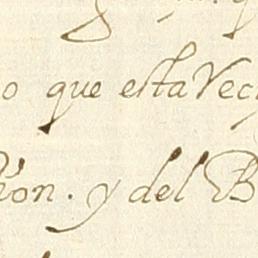 o que esta Vec
ion. y del B